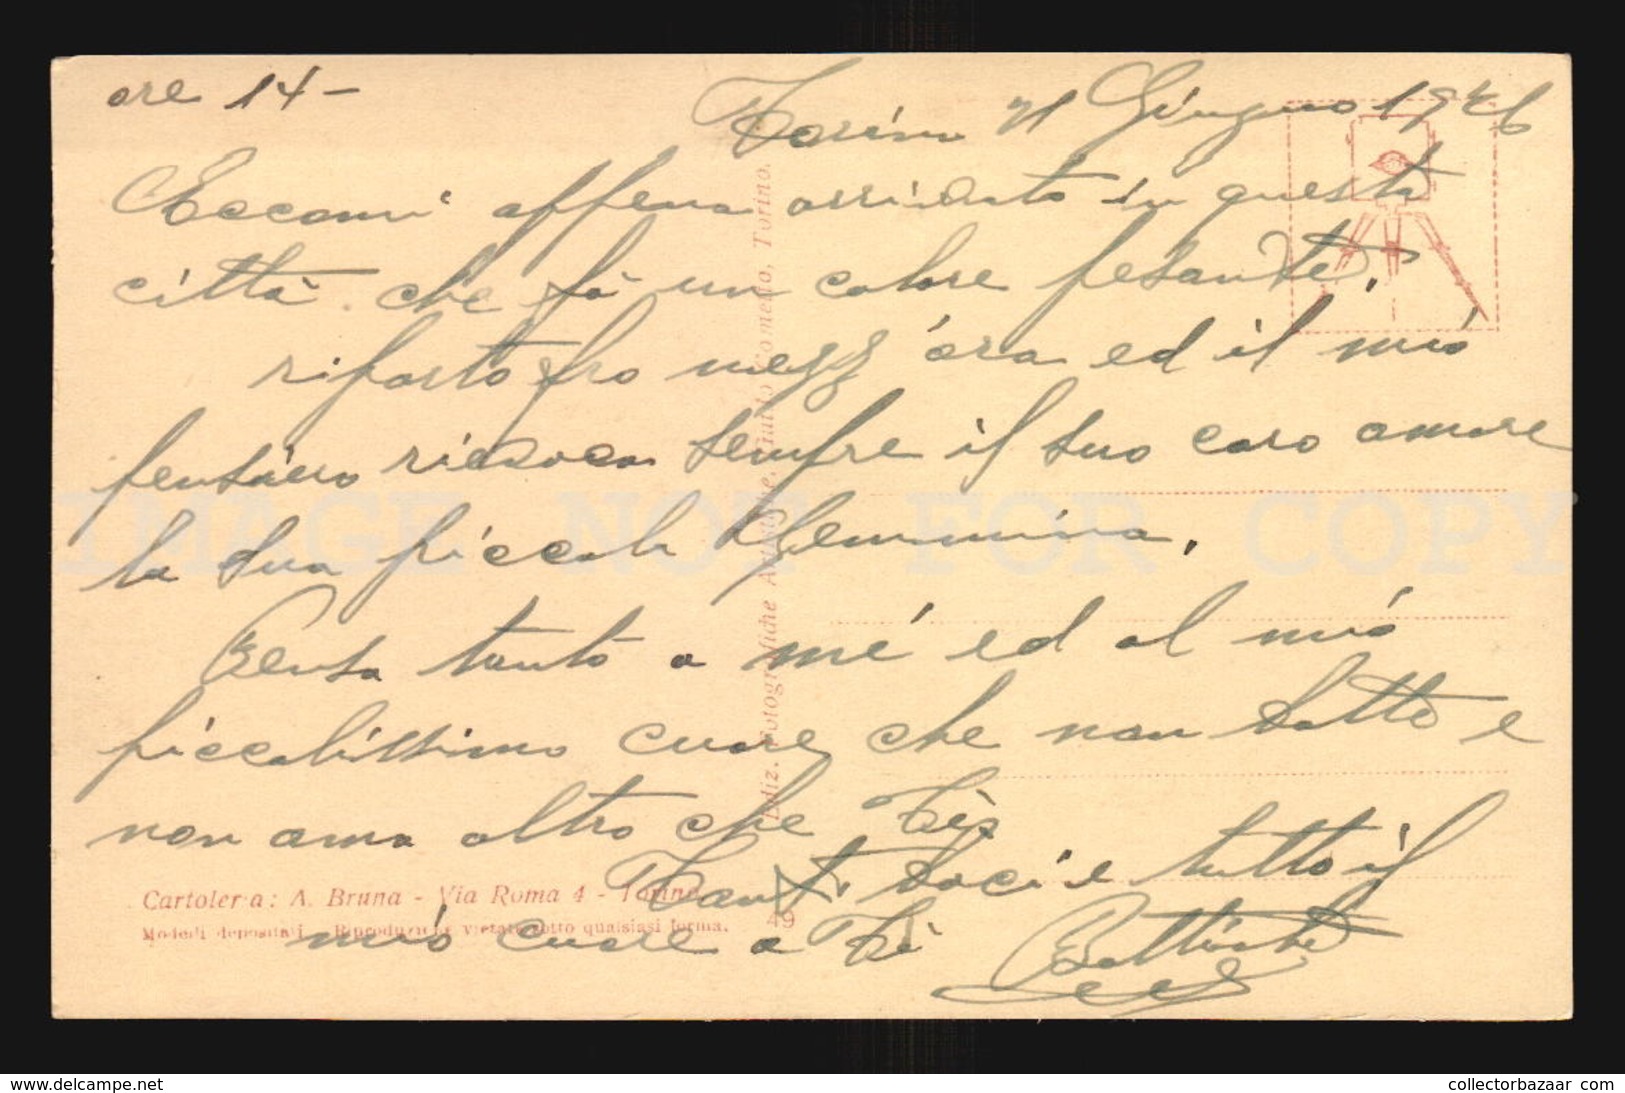 ore 14 -
Torino 21 Giugno 1926
Eccomi appena arrivato in questa
città che fà un calore pesante,
riparto fro mezz'ora ed il mio
pensiero rievoca sempre il suo caro amore
la sua piccola Gemmina.
Pensa tanto a me ed al mio
piccolissimo cuore che non batte e
non ama altro che Tè
Tanti baci e tutto il
mio cuore a Tè Battista
Ediz. Fotografiche Artistiche, Guido Cometto, Torino.
Cartoleria: A. Bruna - Via Roma 4 - Torino
Modelli depositati - Riproduzione vietata sotto qualsiasi forma.
49
IMAGE NOT FOR COPY
www.delcampe.net
collectorbazaar.com